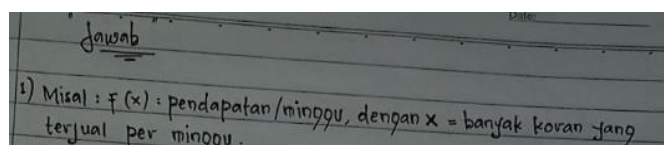 Date:
" Jawab "
1) Misal : F(x) : pendapatan/minggu, dengan x = banyak koran yang
terjual per minggu.